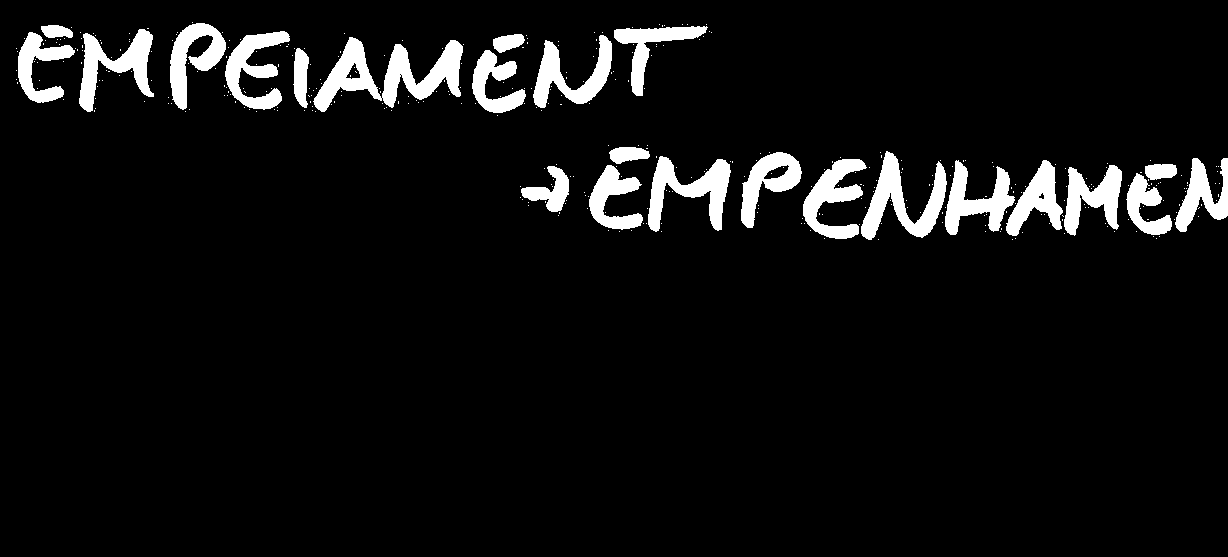 EMPEIAMENT
→ EMPENHAMEN